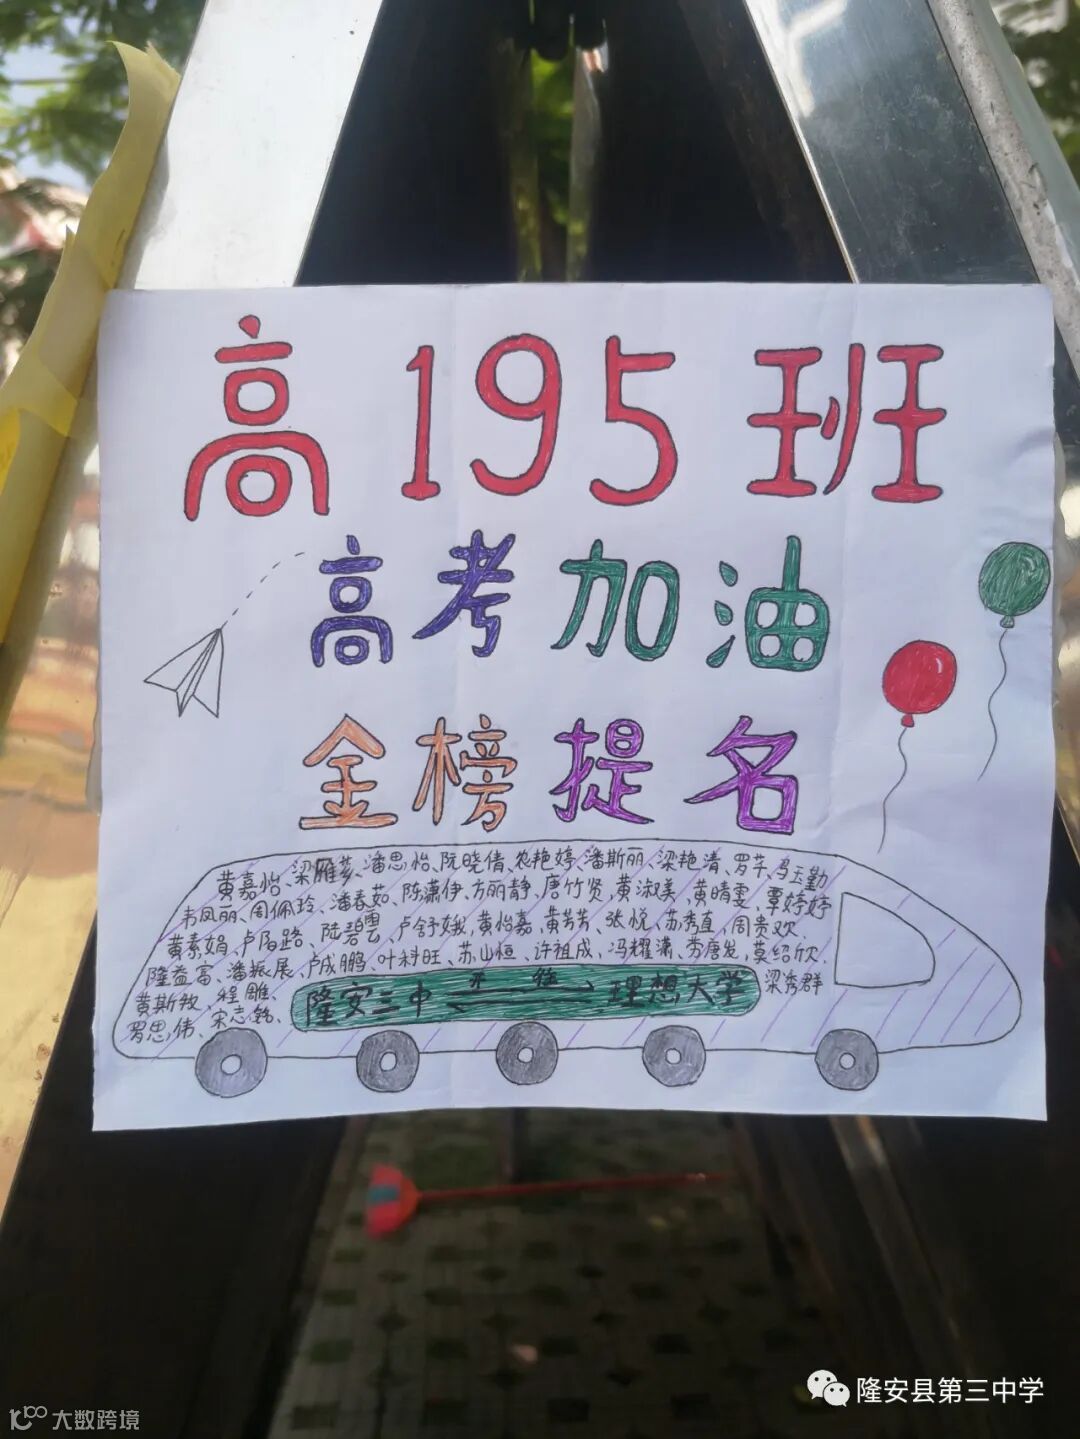 高195班
高考加油
金榜提名
黄嘉怡、梁雁芬、潘思怡、阮晓倩、农艳婷、潘斯丽、梁艳清、罗芊、冯玉勤
韦凤丽、周佩玲、潘春茹、陈潇伊、方丽静、唐竹贤、黄淑美、黄晴雯、覃婷婷
黄素娟、卢陌路、陆碧云、卢舒娥、黄怡嘉、黄芳芳、张悦、苏秀直、周贵欢、
隆益富、潘振展、卢成鹏、叶科旺、苏山恒、许祖成、冯耀潇、劳唐发、莫绍欣、
黄斯敖、程雕、
罗思伟、宋志铭、
隆安三中 来往 理想大学
梁秀群
隆安县第三中学
大数跨境